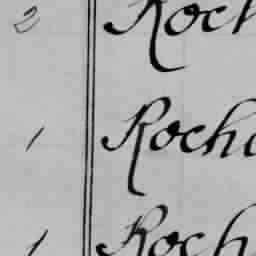 2 Roch
1 Roch
1 Roch